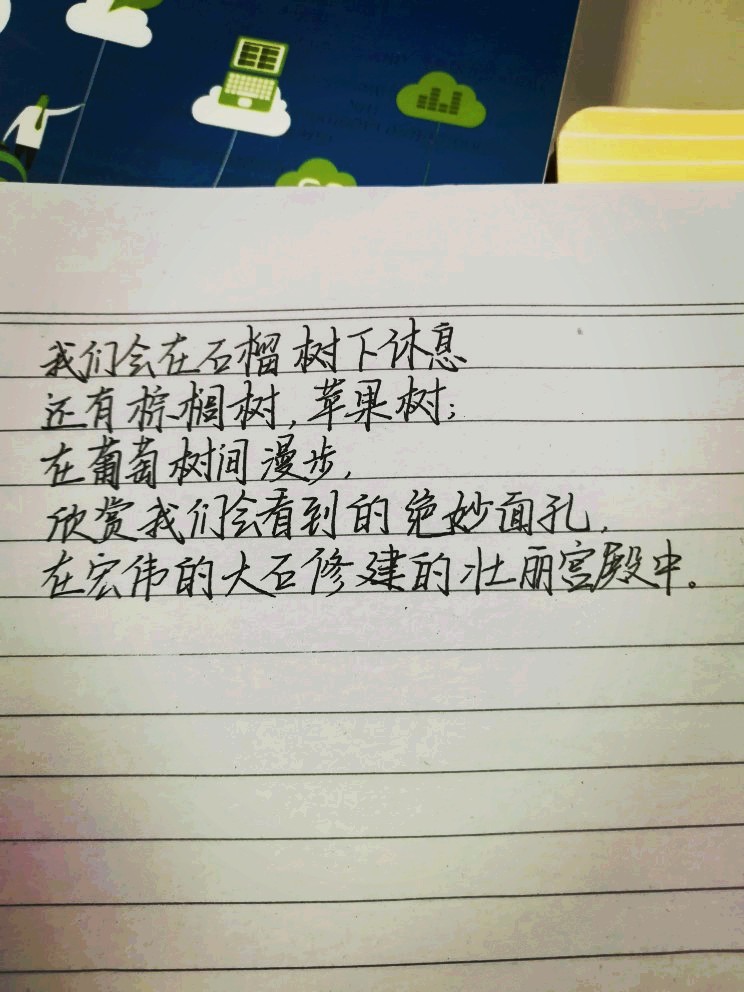 我们会在石榴树下休息
还有棕榈树,苹果树;
在葡萄树间漫步,
欣赏我们会看到的绝妙面孔,
在宏伟的大石修建的壮丽宫殿中。